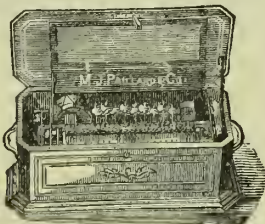 M.J. PAILLARD & CO.